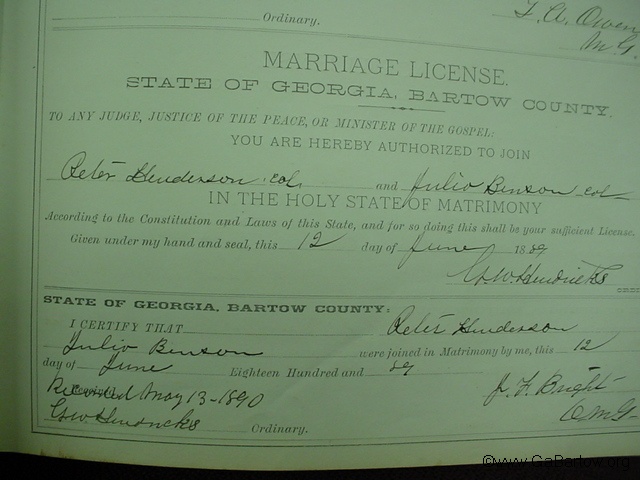 Ordinary. T. A. Owen
M G.
MARRIAGE LICENSE.
STATE OF GEORGIA, BARTOW COUNTY.
TO ANY JUDGE, JUSTICE OF THE PEACE, OR MINISTER OF THE GOSPEL:
YOU ARE HEREBY AUTHORIZED TO JOIN
Peter Henderson col. and Julio Benson col
IN THE HOLY STATE OF MATRIMONY
According to the Constitution and Laws of this State, and for so doing this shall be your sufficient License.
Given under my hand and seal, this 12 day of June 1889
G.W. Hendricks
STATE OF GEORGIA, BARTOW COUNTY:
I CERTIFY THAT Peter Henderson
Julio Benson were joined in Matrimony by me, this 12
day of June Eighteen Hundred and 89
Recorded May 13-1890 J. F. Bright
G.W. Hendricks Ordinary. O M G
©www.GaBartow.org